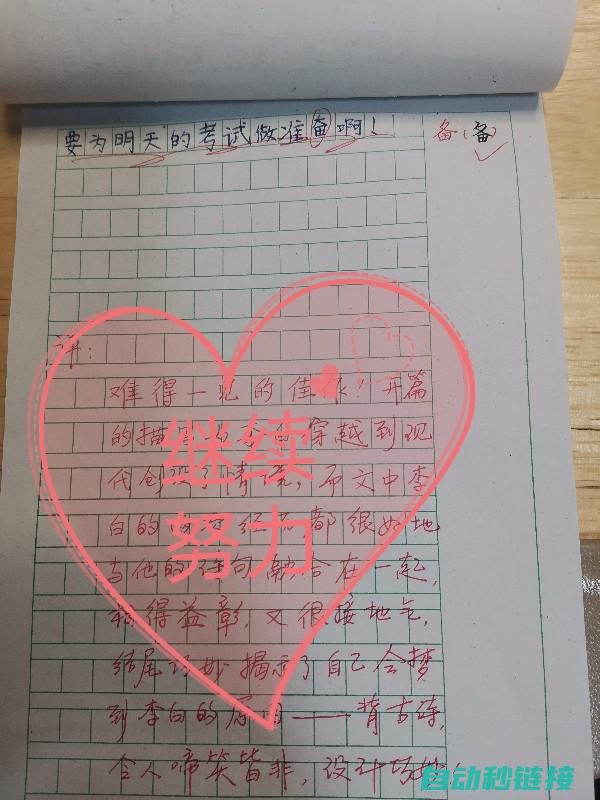 要为明天的考试做准奋啊！
备(备)
评：
难得一见的佳作！开篇
的描写为李白穿越到现
代创设了情境，而文中李
白的经历，都很好地
与他的诗句融合在一起，
相得益彰，又很接地气，
结尾巧妙揭示了自己会梦
到李白的原因——背古诗，
令人啼笑皆非，设计巧妙！
继续
努力
自动秒链接